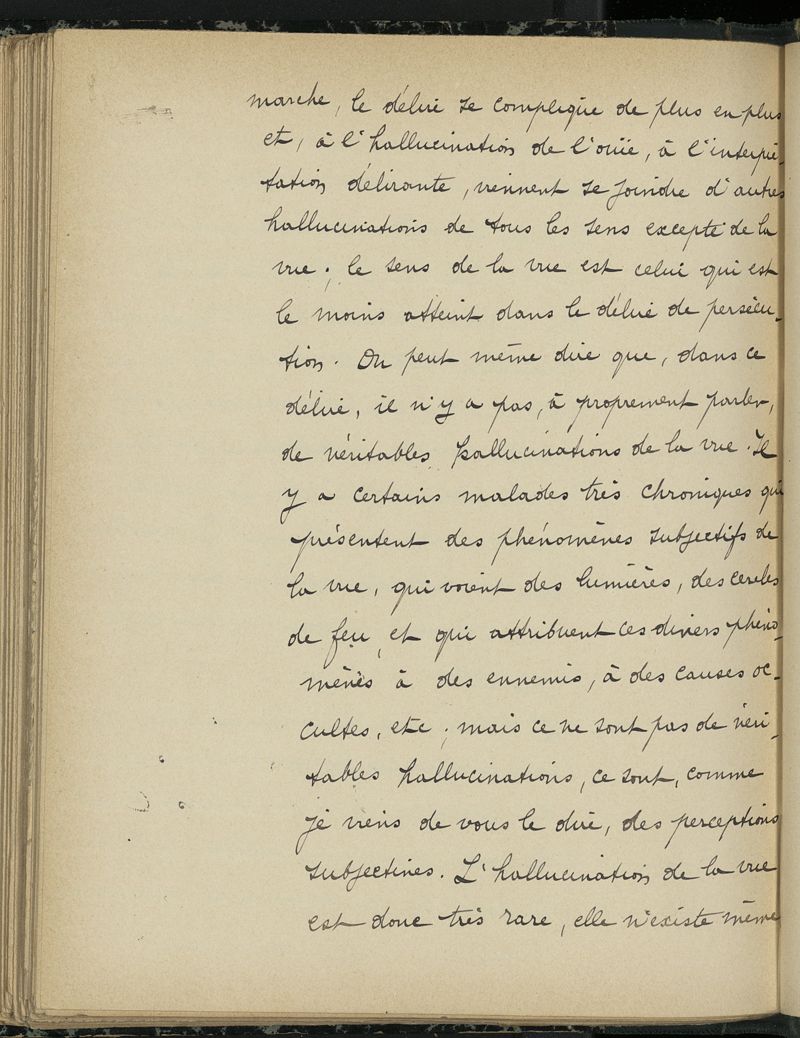 marche, le délire se complique de plus en plus
et, à l'hallucination de l'ouïe, à l'interpré-
tation délirante, viennent se joindre d'autres
hallucinations de tous les sens excepté de la
vue ; le sens de la vue est celui qui est
le moins atteint dans le délire de persécu-
tion. On peut même dire que, dans ce
délire, il n'y a pas, à proprement parler,
de véritables hallucinations de la vue. Il
y a certains malades très chroniques qui
présentent des phénomènes subjectifs de
la vue, qui voient des lumières, des cercles
de feu, et qui attribuent ces divers phéno-
mènes à des ennemis, à des causes oc-
cultes, etc ; mais ce ne sont pas de véri-
tables hallucinations, ce sont, comme
je viens de vous le dire, des perceptions
subjectives. L'hallucination de la vue
est donc très rare, elle n'existe même